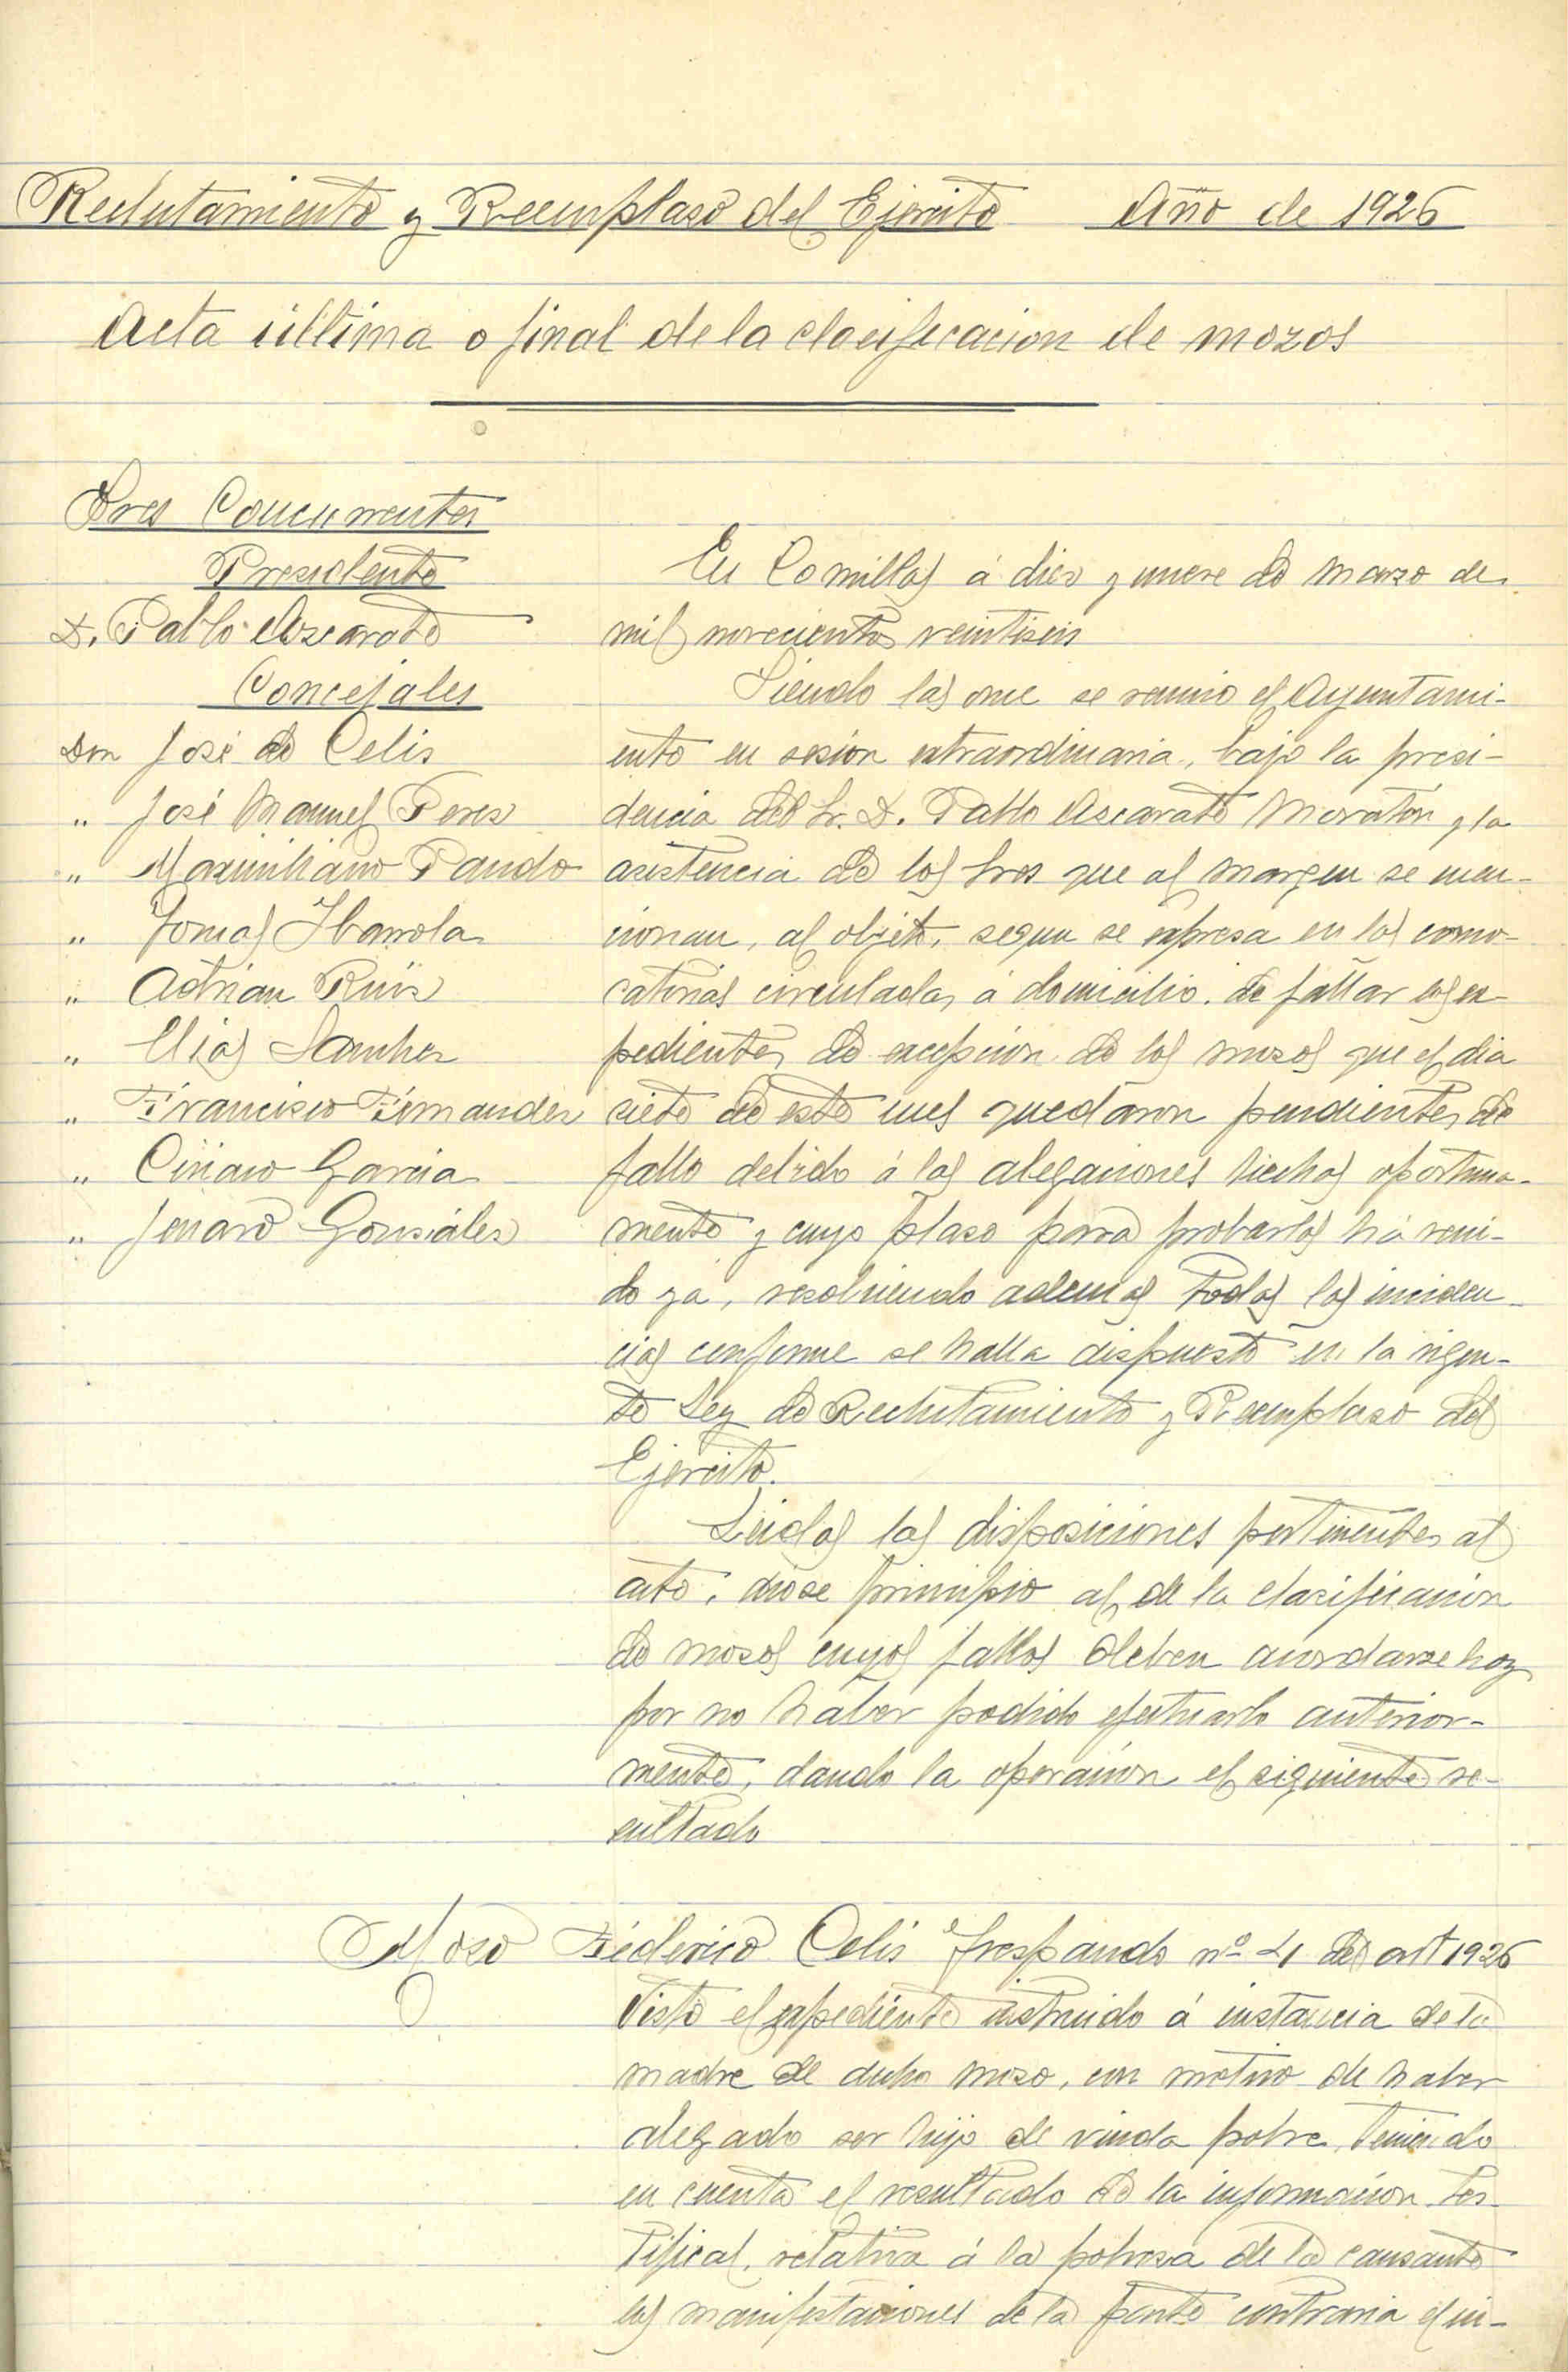 Reclutamiento y Reemplaso del Ejercito Año de 1926
Acta última o final de la clocificacion de mozos
Sres Concurrentes
Presidente
D. Pablo Ascarate
Concejales
Don José de Celis
" José Manuel Peres
" Maximiliano Pando
" Tomas Ibarrola
" Adrian Ruis
" Elias Sanches
" Francisco Fernandes
" Ciriaco Garcia
" Jenaro Gonsáles
En Comillas á dies y nueve de Marzo de
mil novecientos veintiseis
Siendo las once se reunio el Ayuntami-
ento en sesion extraordinaria, bajo la presi-
dencia del Sr. D. Pablo Ascarate Moratón y la
asistencia de los Sres que al margen se men-
cionan, al objeto, segun se expresa en las convo-
catorias circuladas á domicilio, de fallar los ex-
pedientes de excepcion de los mosos que el dia
siete de este mes quedaron pendientes de
fallo debido á las alegaciones hechas oportuna-
mente y cuyo plaso para probarlas há veni-
do ya, resolviendo ademas todas las inciden-
cias conforme se halla dispuesto en la vigen-
te Ley de Reclutamiento y Reemplaso del
Ejercito.
Leidas las disposiciones pertinentes al
acto, diose principio al de la clasificacion
de mosos cuyos fallos deben acordarse hoy
por no haber podido efectuarlo anterior-
mente, dando la operacion el siguiente re-
sultado
Moso Federico Celis Trespando nº 41 del art 1926
Visto el expediente instruido á instancia de la
madre de dicho moso, con motivo de haber
alegado ser hijo de viuda pobre, teniendo
en cuenta el resultado de la informacion tes-
tifical, relativa á la pobresa de la causante
las manifestaciones de la parte contraria el in-